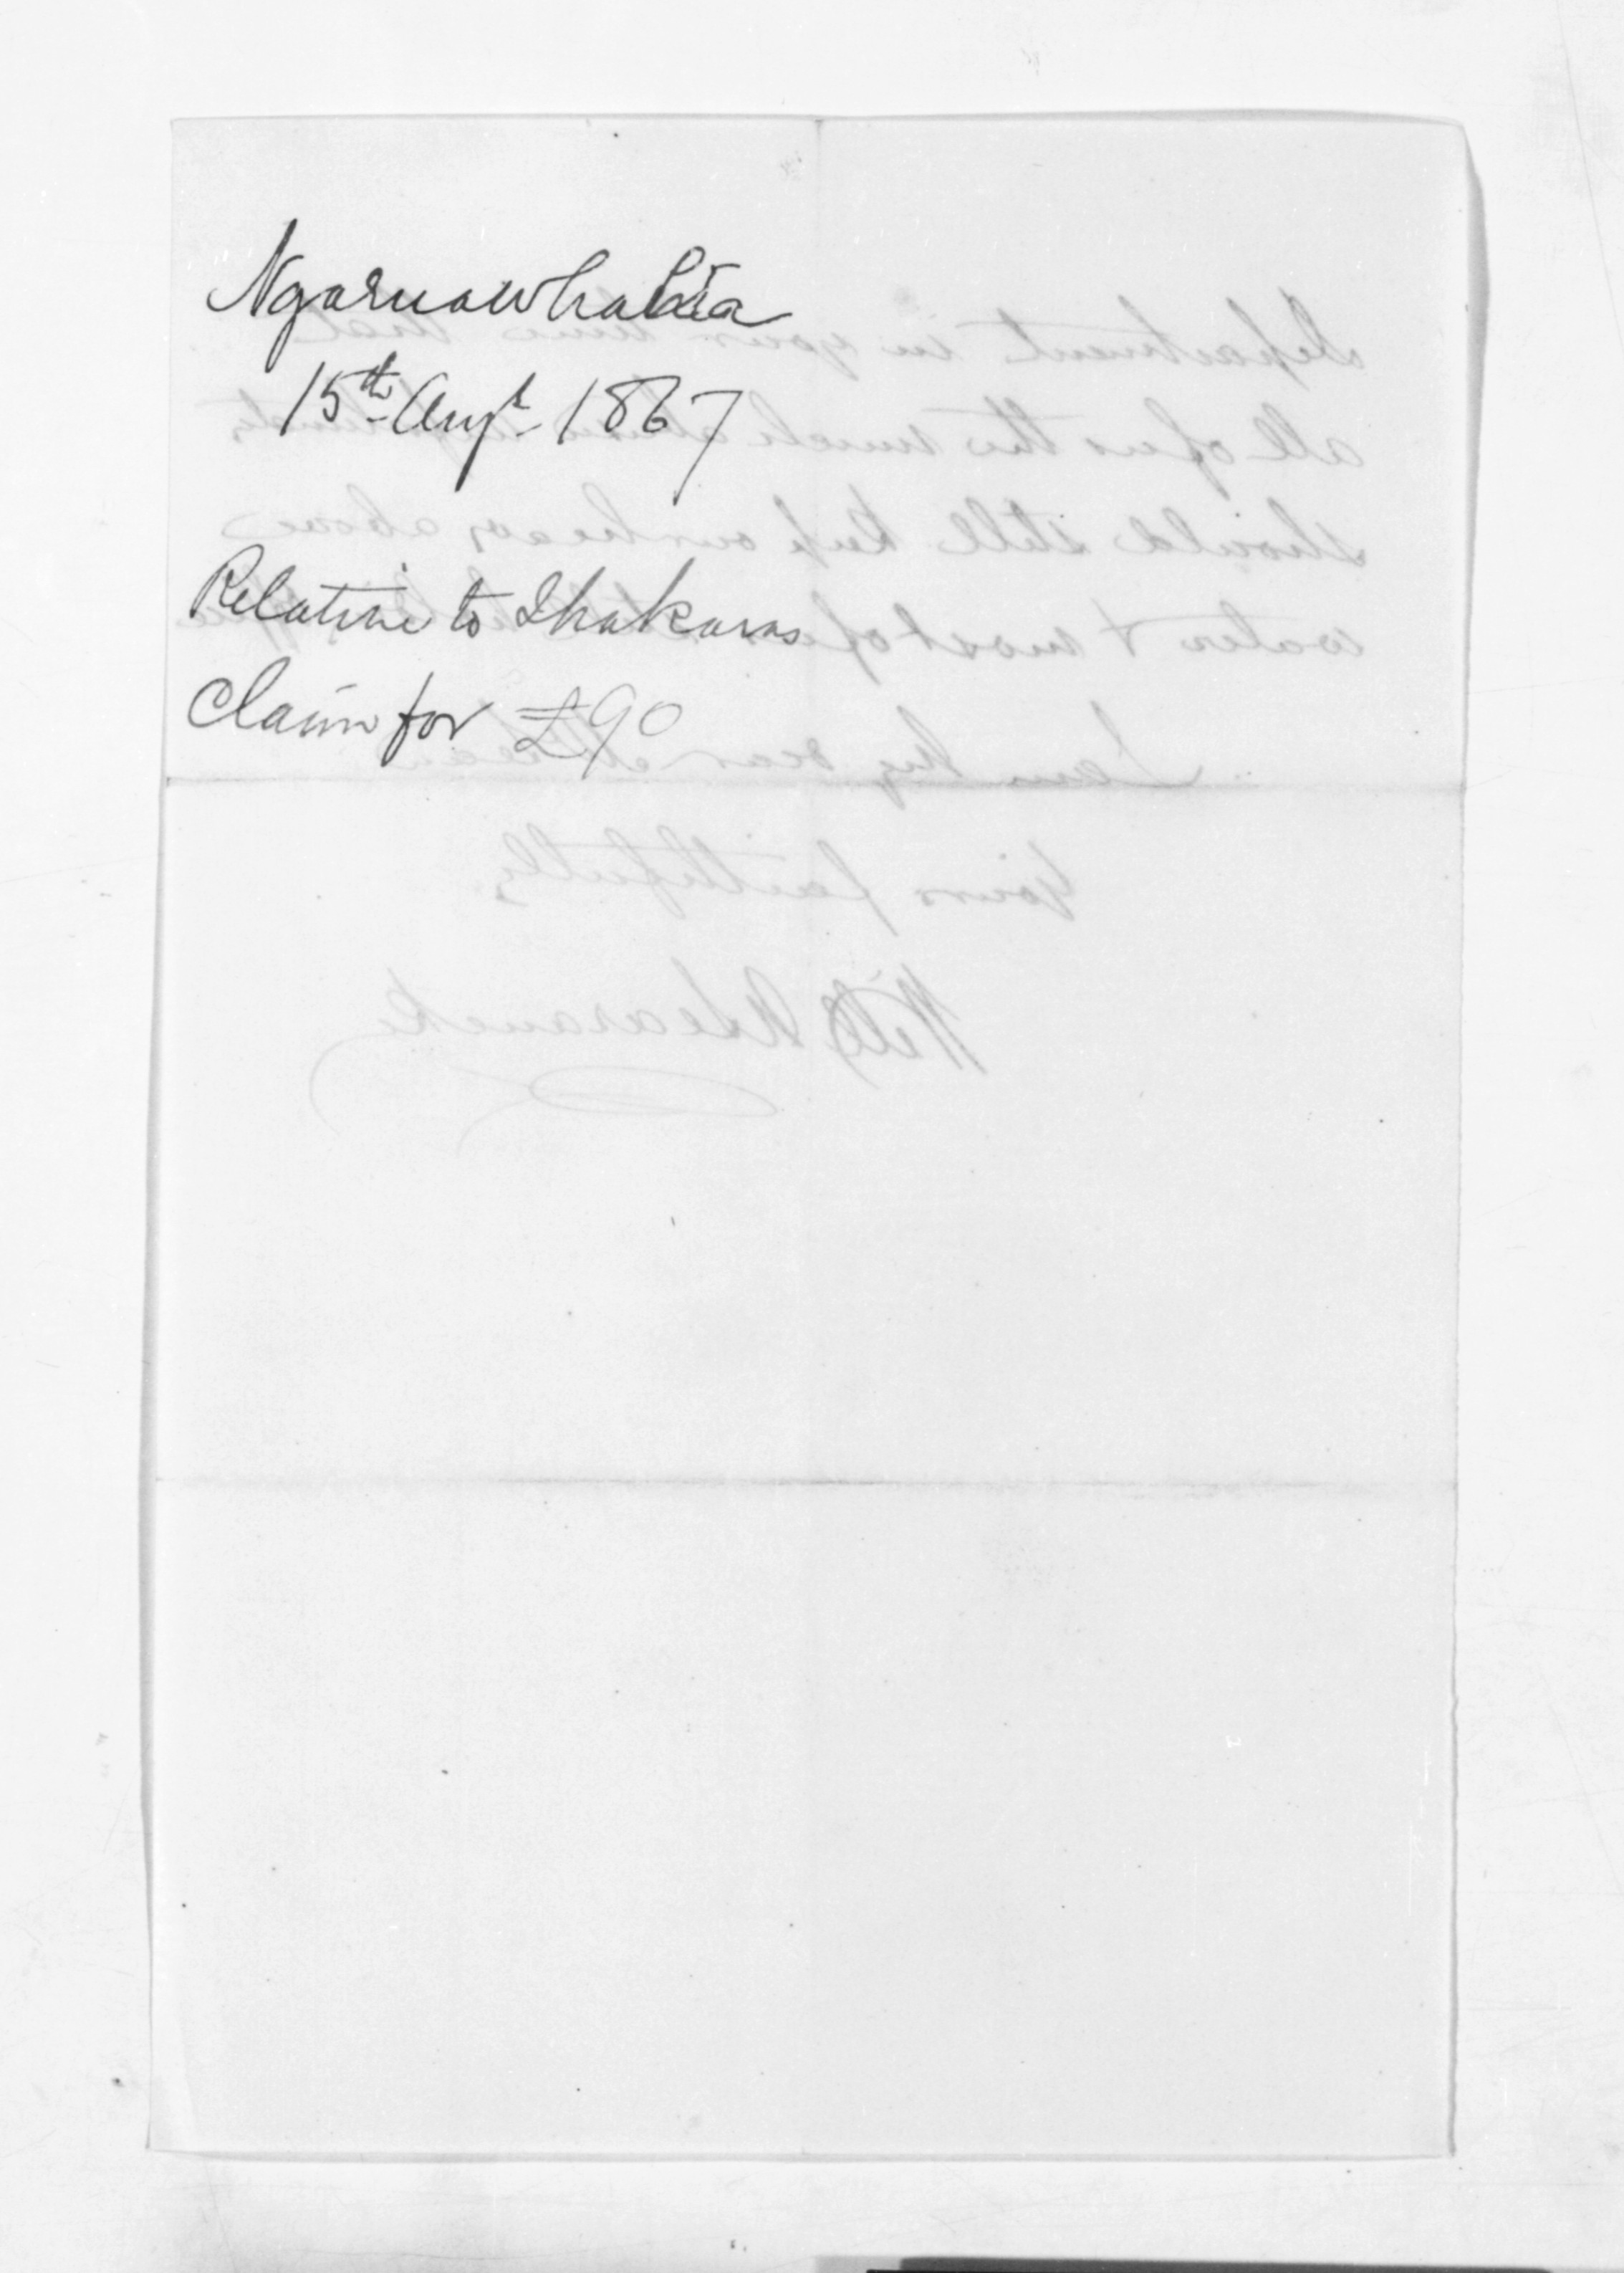 Ngaruawhahia
15th Augt 1867
Relative to Ihakaras
Claim for £90